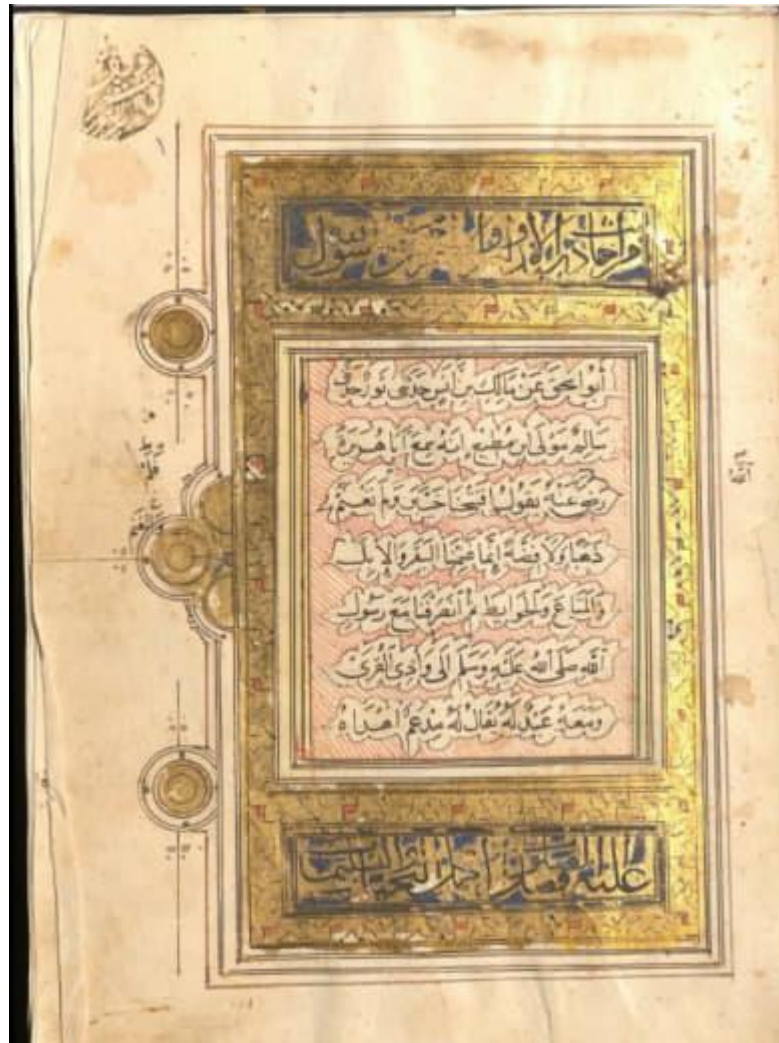 من احاديث رسول
أبو اسحق عن مالك بن أنس حدثني ثور حدثني
سالم مولى ابن مطيع انه سمع أبا هريرة
رضي عنه يقول افتتحنا خيبر ولم نغنم
ذهبا ولا فضة إنما غنمنا البقر والإبل
والمتاع والحوايط ثم انصرفنا مع رسول
الله صلى الله عليه وسلم الى وادي القرى
ومعه عبد له يقال له مدعم اهداه
عليه افضل واجمل التحيات
الله